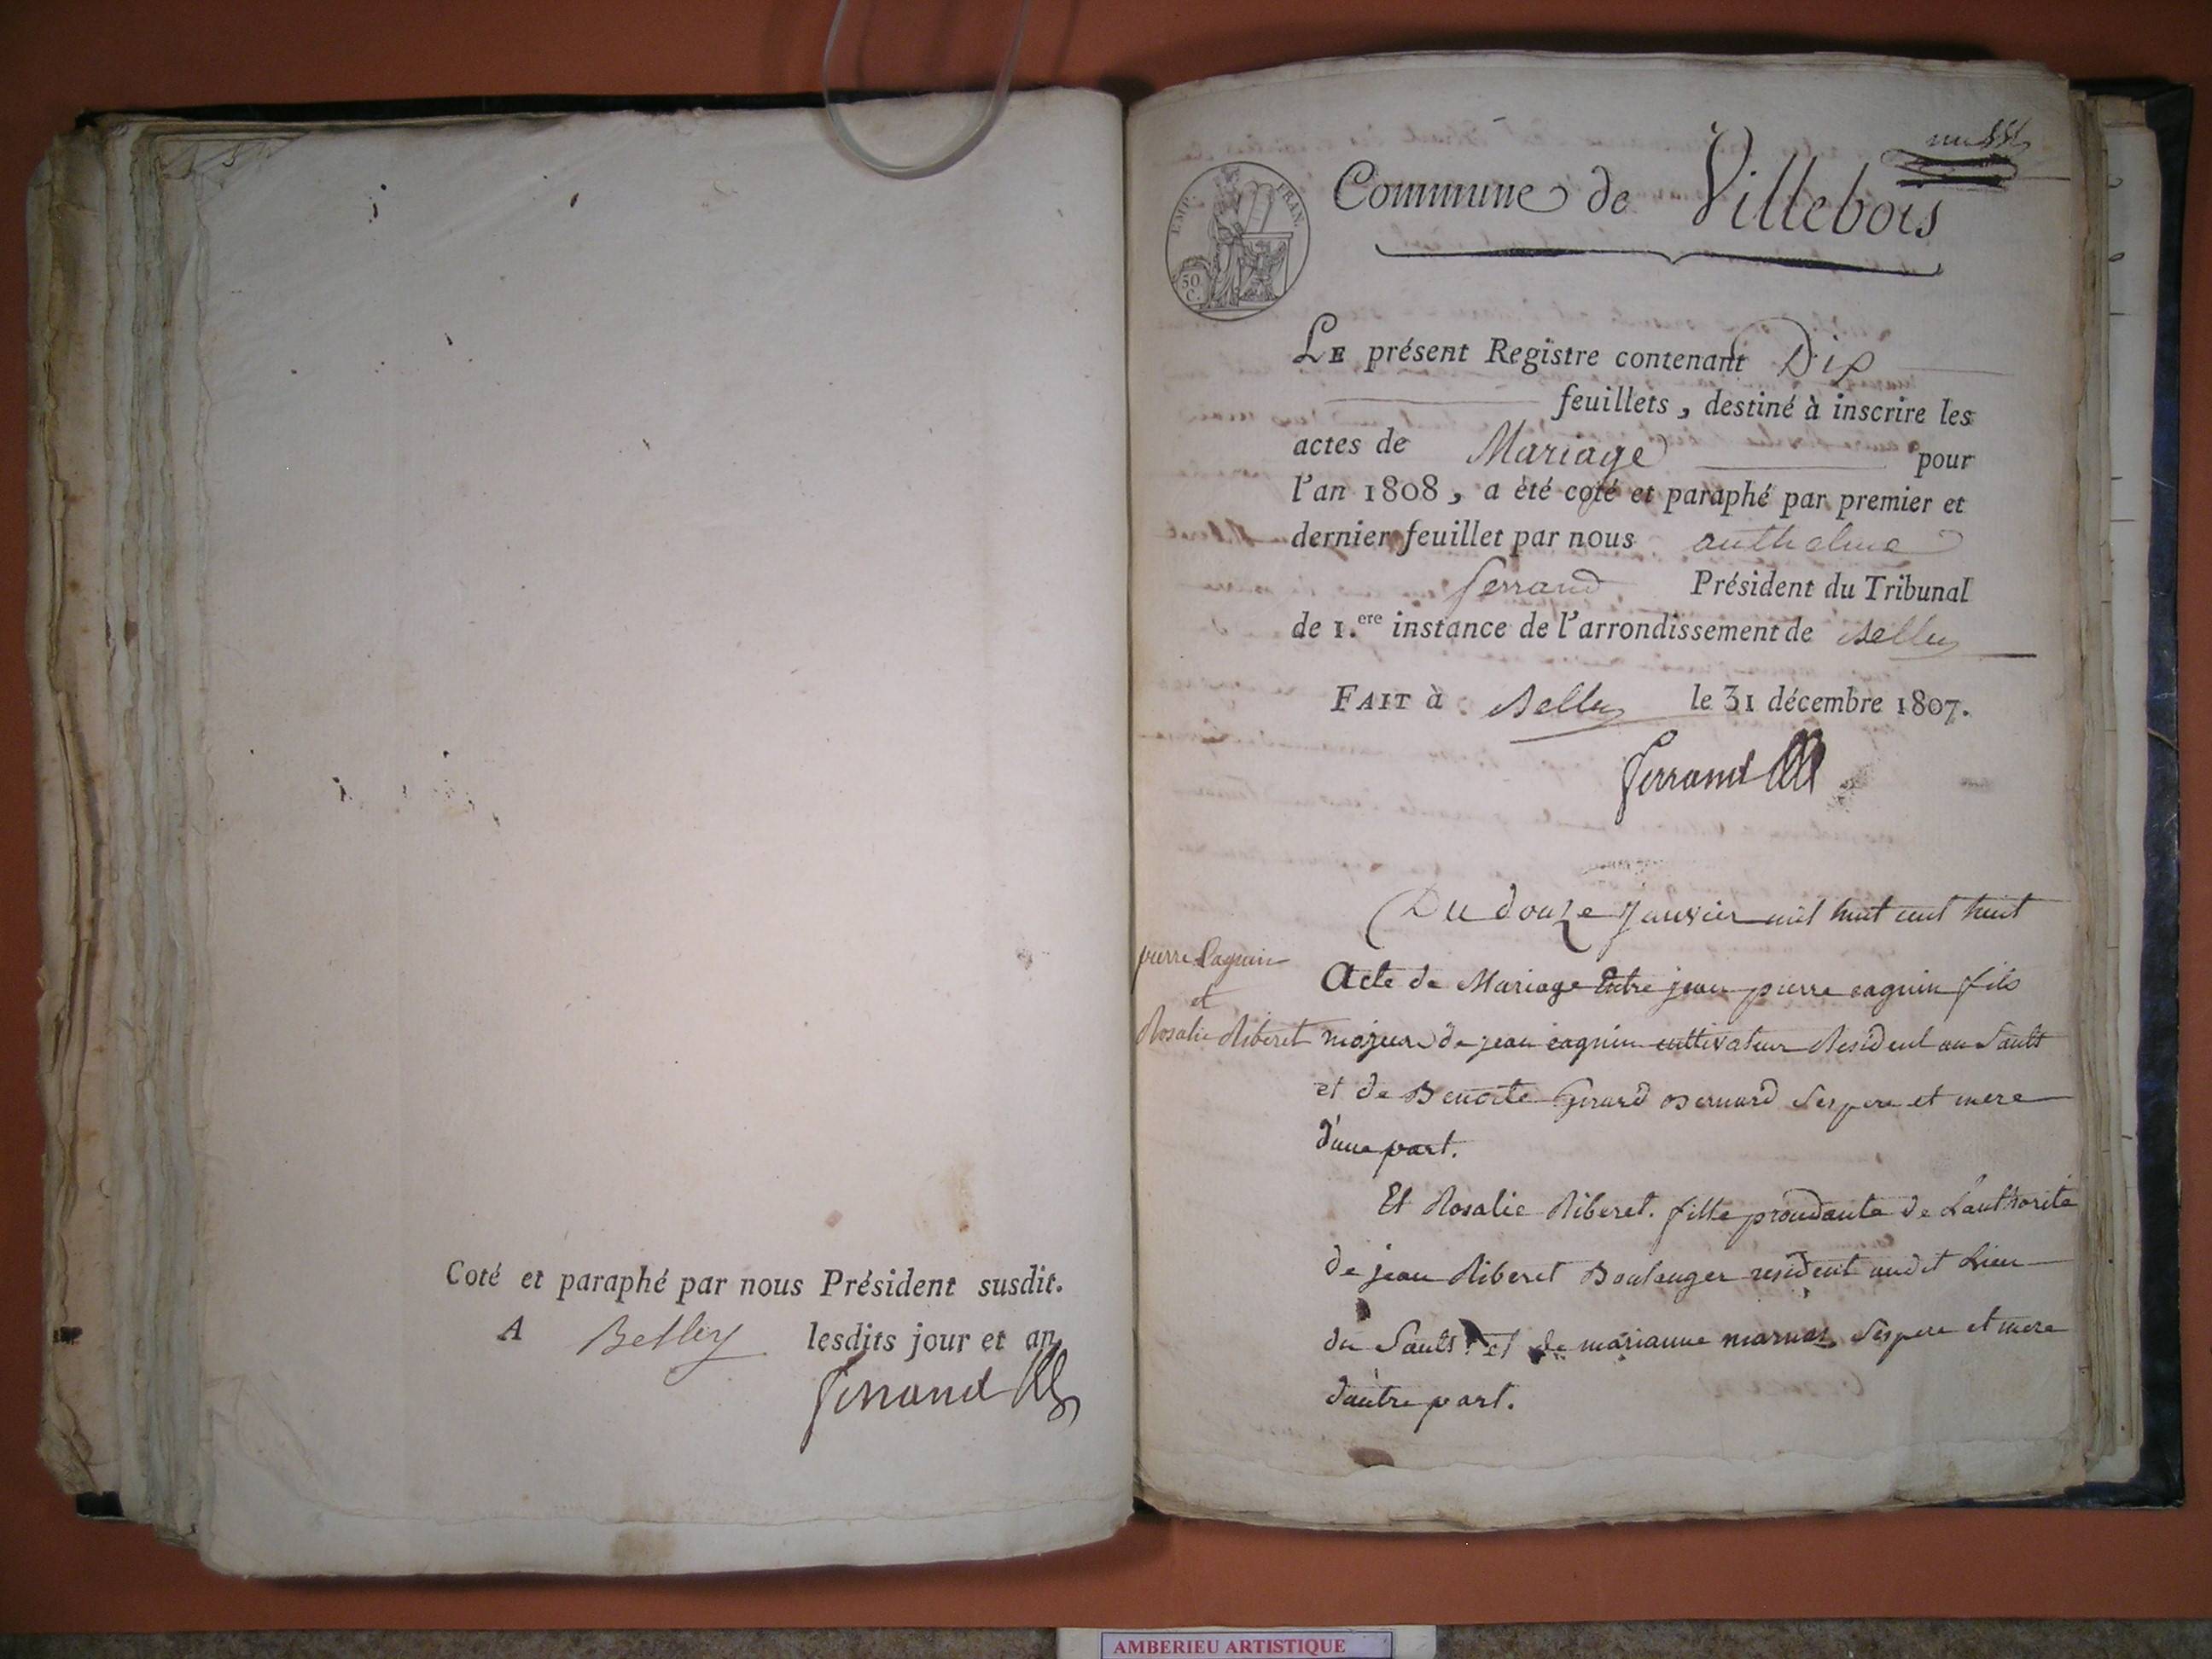 Coté et paraphé par nous Président susdit.
A Belley lesdits jour et an
Ferrand
EMP. FRAN.
50 C.
Commune de Villebois
LE présent Registre contenant Dix
feuillets, destiné à inscrire les
actes de Mariage pour
l'an 1808, a été coté et paraphé par premier et
dernier feuillet par nous anthelme
ferrand Président du Tribunal
de 1.ere instance de l'arrondissement de Belley
FAIT à Belley le 31 décembre 1807.
ferrand
Du douze Janvier mil huit cent huit
pierre Cagnin
et
Rosalie Riberet
Acte de Mariage Entre jean pierre cagnin fils
majeur de jean cagnin cultivateur Resident au Sault
et de Benoite Girard Bernard Ses pere et mere
d'une part.
Et Rosalie Riberet. fille de L'authorité
de jean Riberet Boulanger resident audit Lieu
du Sault et de marianne marnas Ses pere et mere
d'autre part.
AMBERIEU ARTISTIQUE